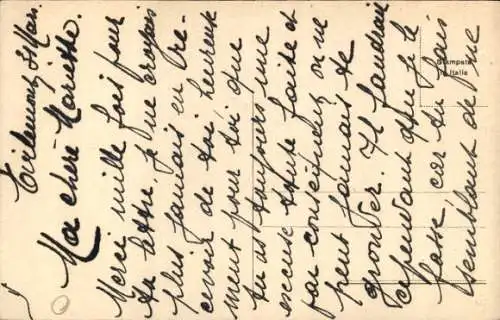 Tirlemont, 7 Mars.
Ma chère Mariette.
Merci mille fois pour
ta lettre. Je ne croyais
plus jamais en re-
cevoir de toi, heureuse
ment pour toi que
tu as toujours une
excuse toute faite et
par conséquent on ne
peut jamais te
gronder. Il faudrait
cependant que je le
fasse car tu fais
semblant de ne
Stampata
in Italia